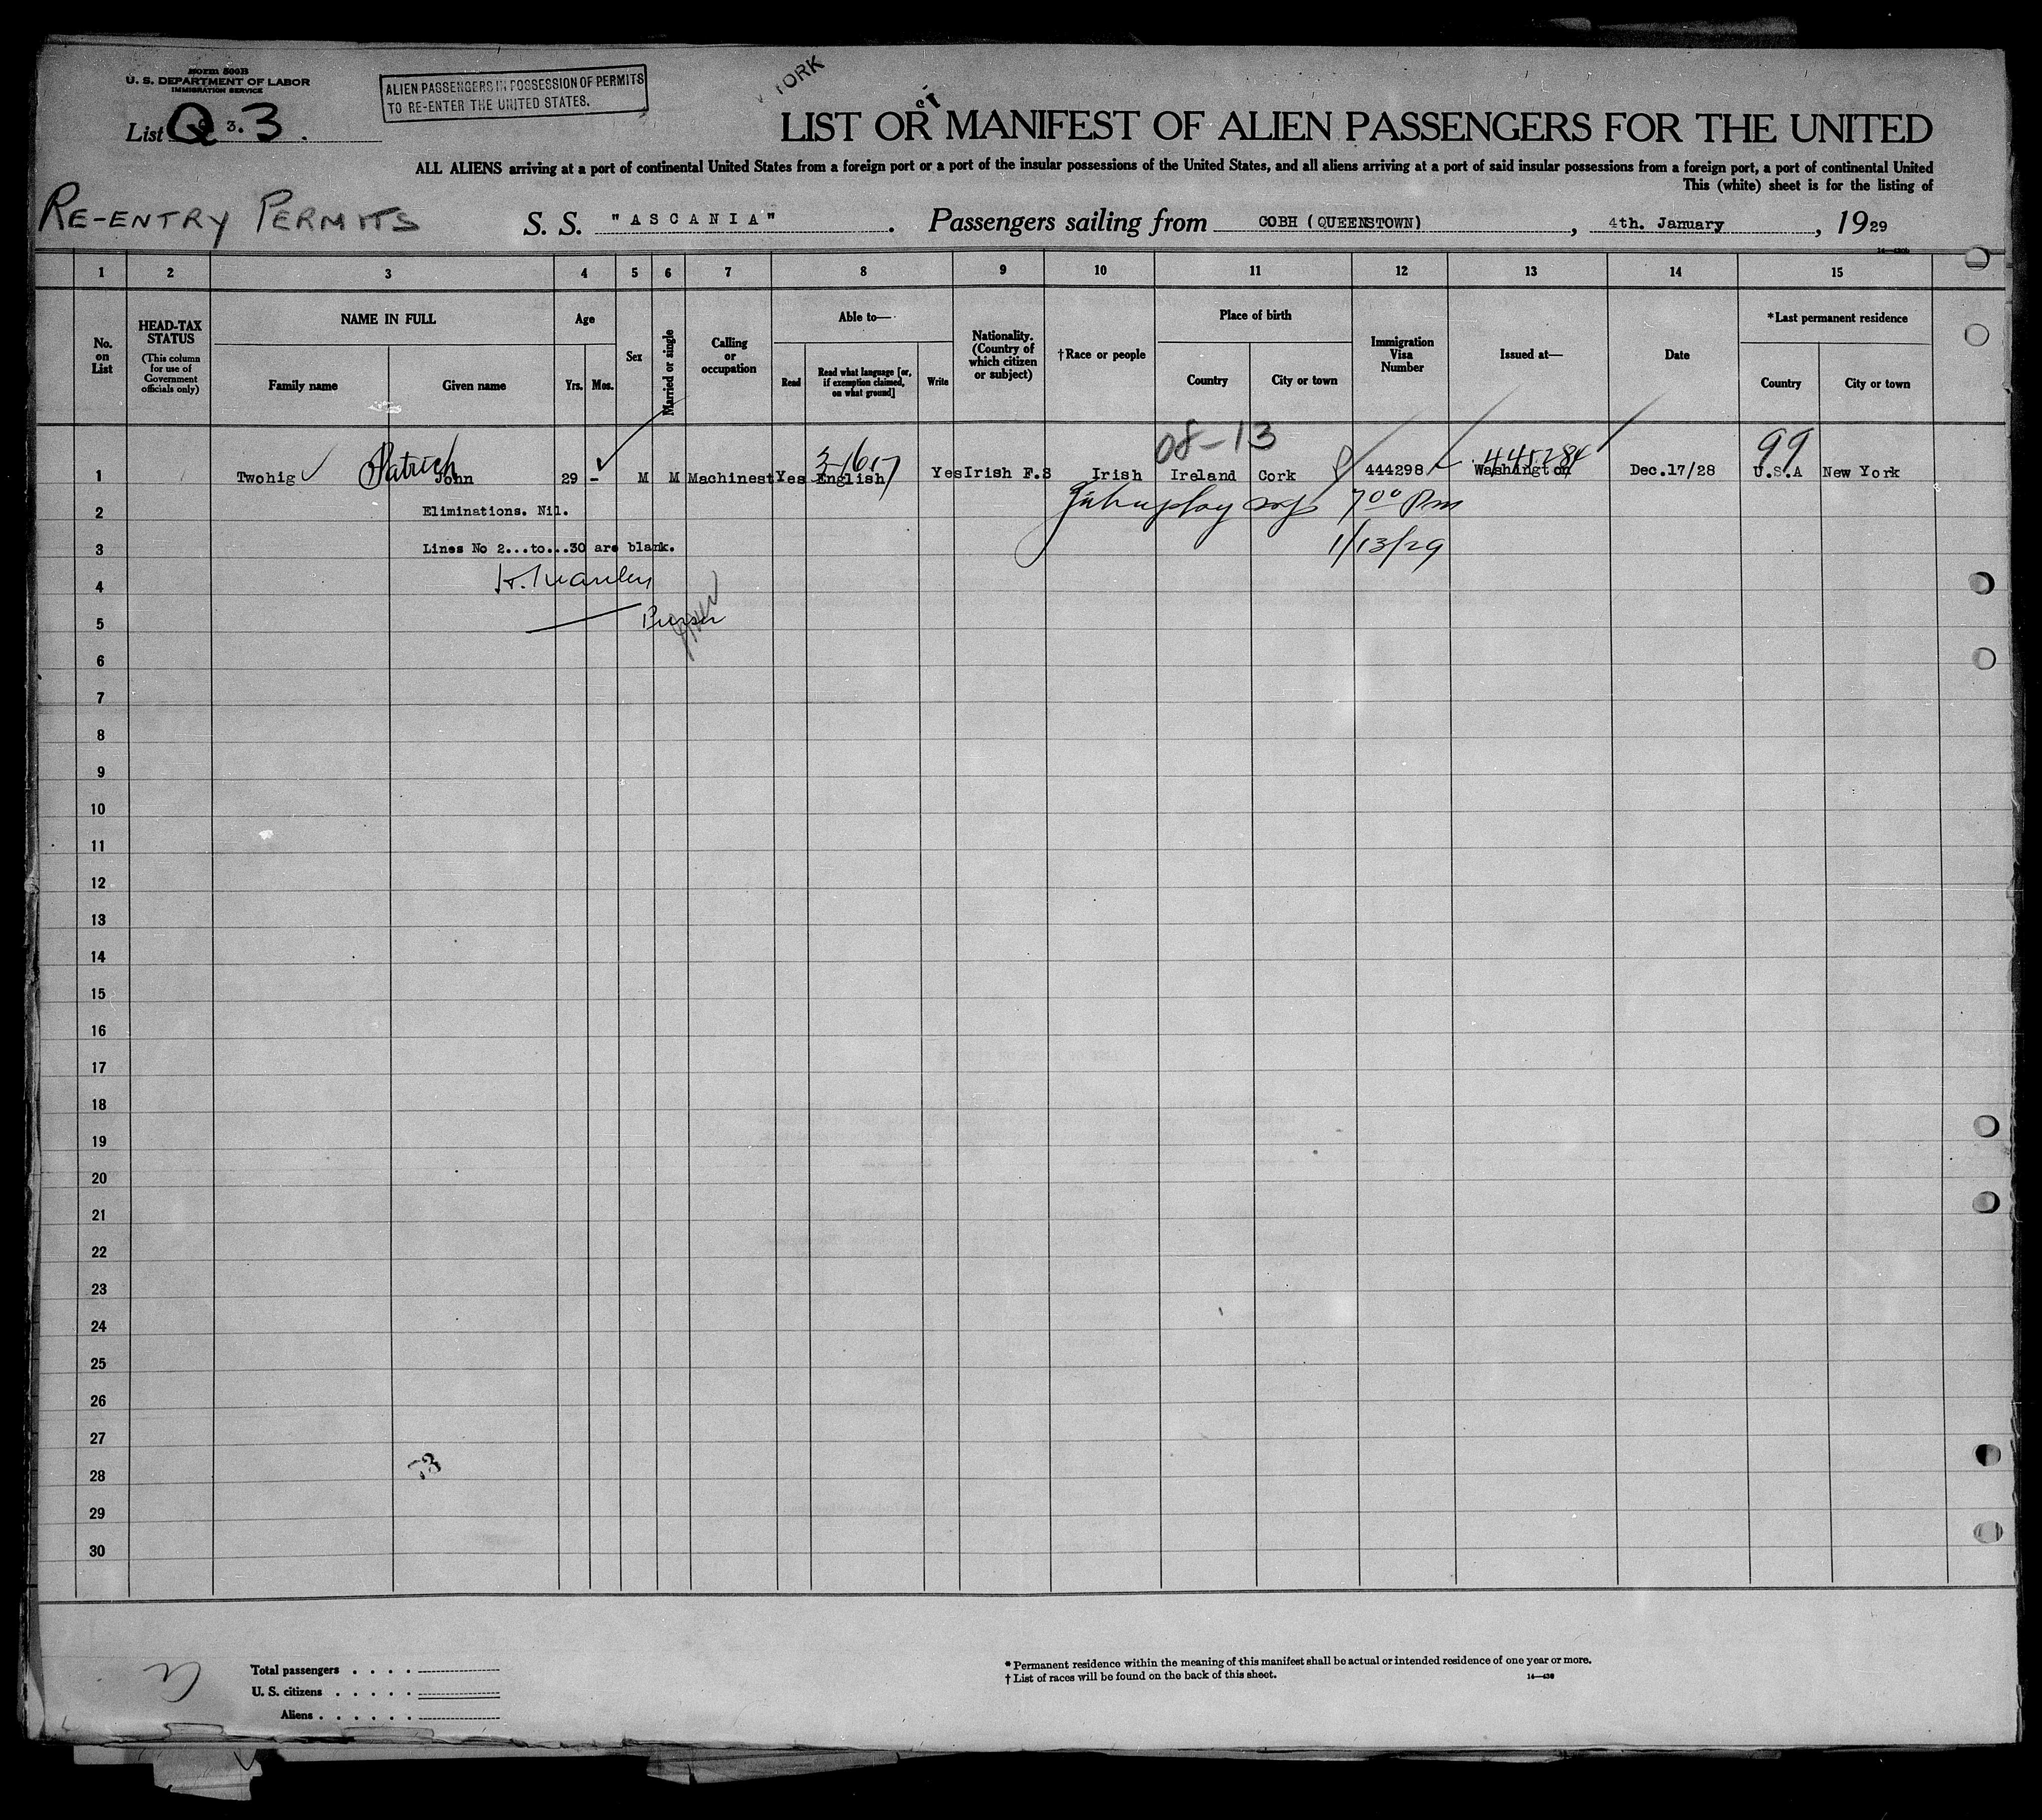 Form 500B
U. S. DEPARTMENT OF LABOR
IMMIGRATION SERVICE
ALIEN PASSENGERS IN POSSESSION OF PERMITS
TO RE-ENTER THE UNITED STATES.
YORK
List Q 3. 3 .
LIST OR MANIFEST OF ALIEN PASSENGERS FOR THE UNITED
ALL ALIENS arriving at a port of continental United States from a foreign port or a port of the insular possessions of the United States, and all aliens arriving at a port of said insular possessions from a foreign port, a port of continental United
This (white) sheet is for the listing of
RE-ENTRY PERMITS
S. S. "ASCANIA" . Passengers sailing from COBH (QUEENSTOWN) , 4th. January , 1929
1 2 3 4 5 6 7 8 9 10 11 12 13 14 15
No. on List
HEAD-TAX STATUS
(This column for use of Government officials only)
NAME IN FULL
Family name
Given name
Age
Yrs.
Mos.
Sex
Married or single
Calling or occupation
Able to—
Read
Read what language [or, if exemption claimed, on what ground]
Write
Nationality. (Country of which citizen or subject)
†Race or people
Place of birth
Country
City or town
Immigration Visa Number
Issued at—
Date
*Last permanent residence
Country
City or town
08-13
99
Patrick
445284
1 Twohig John 29 - M M Machinest Yes English Yes Irish F.S Irish Ireland Cork 444298 Washington Dec.17/28 U.S.A New York
2 Eliminations. Nil. 7 00 Pm
3 Lines No 2...to...30 are blank. 1/13/29
4
5 Purser
6
7
8
9
10
11
12
13
14
15
16
17
18
19
20
21
22
23
24
25
26
27
28
29
30
73
Total passengers . . . .
U. S. citizens . . . . .
Aliens . . . . . .
* Permanent residence within the meaning of this manifest shall be actual or intended residence of one year or more.
† List of races will be found on the back of this sheet.
14—430